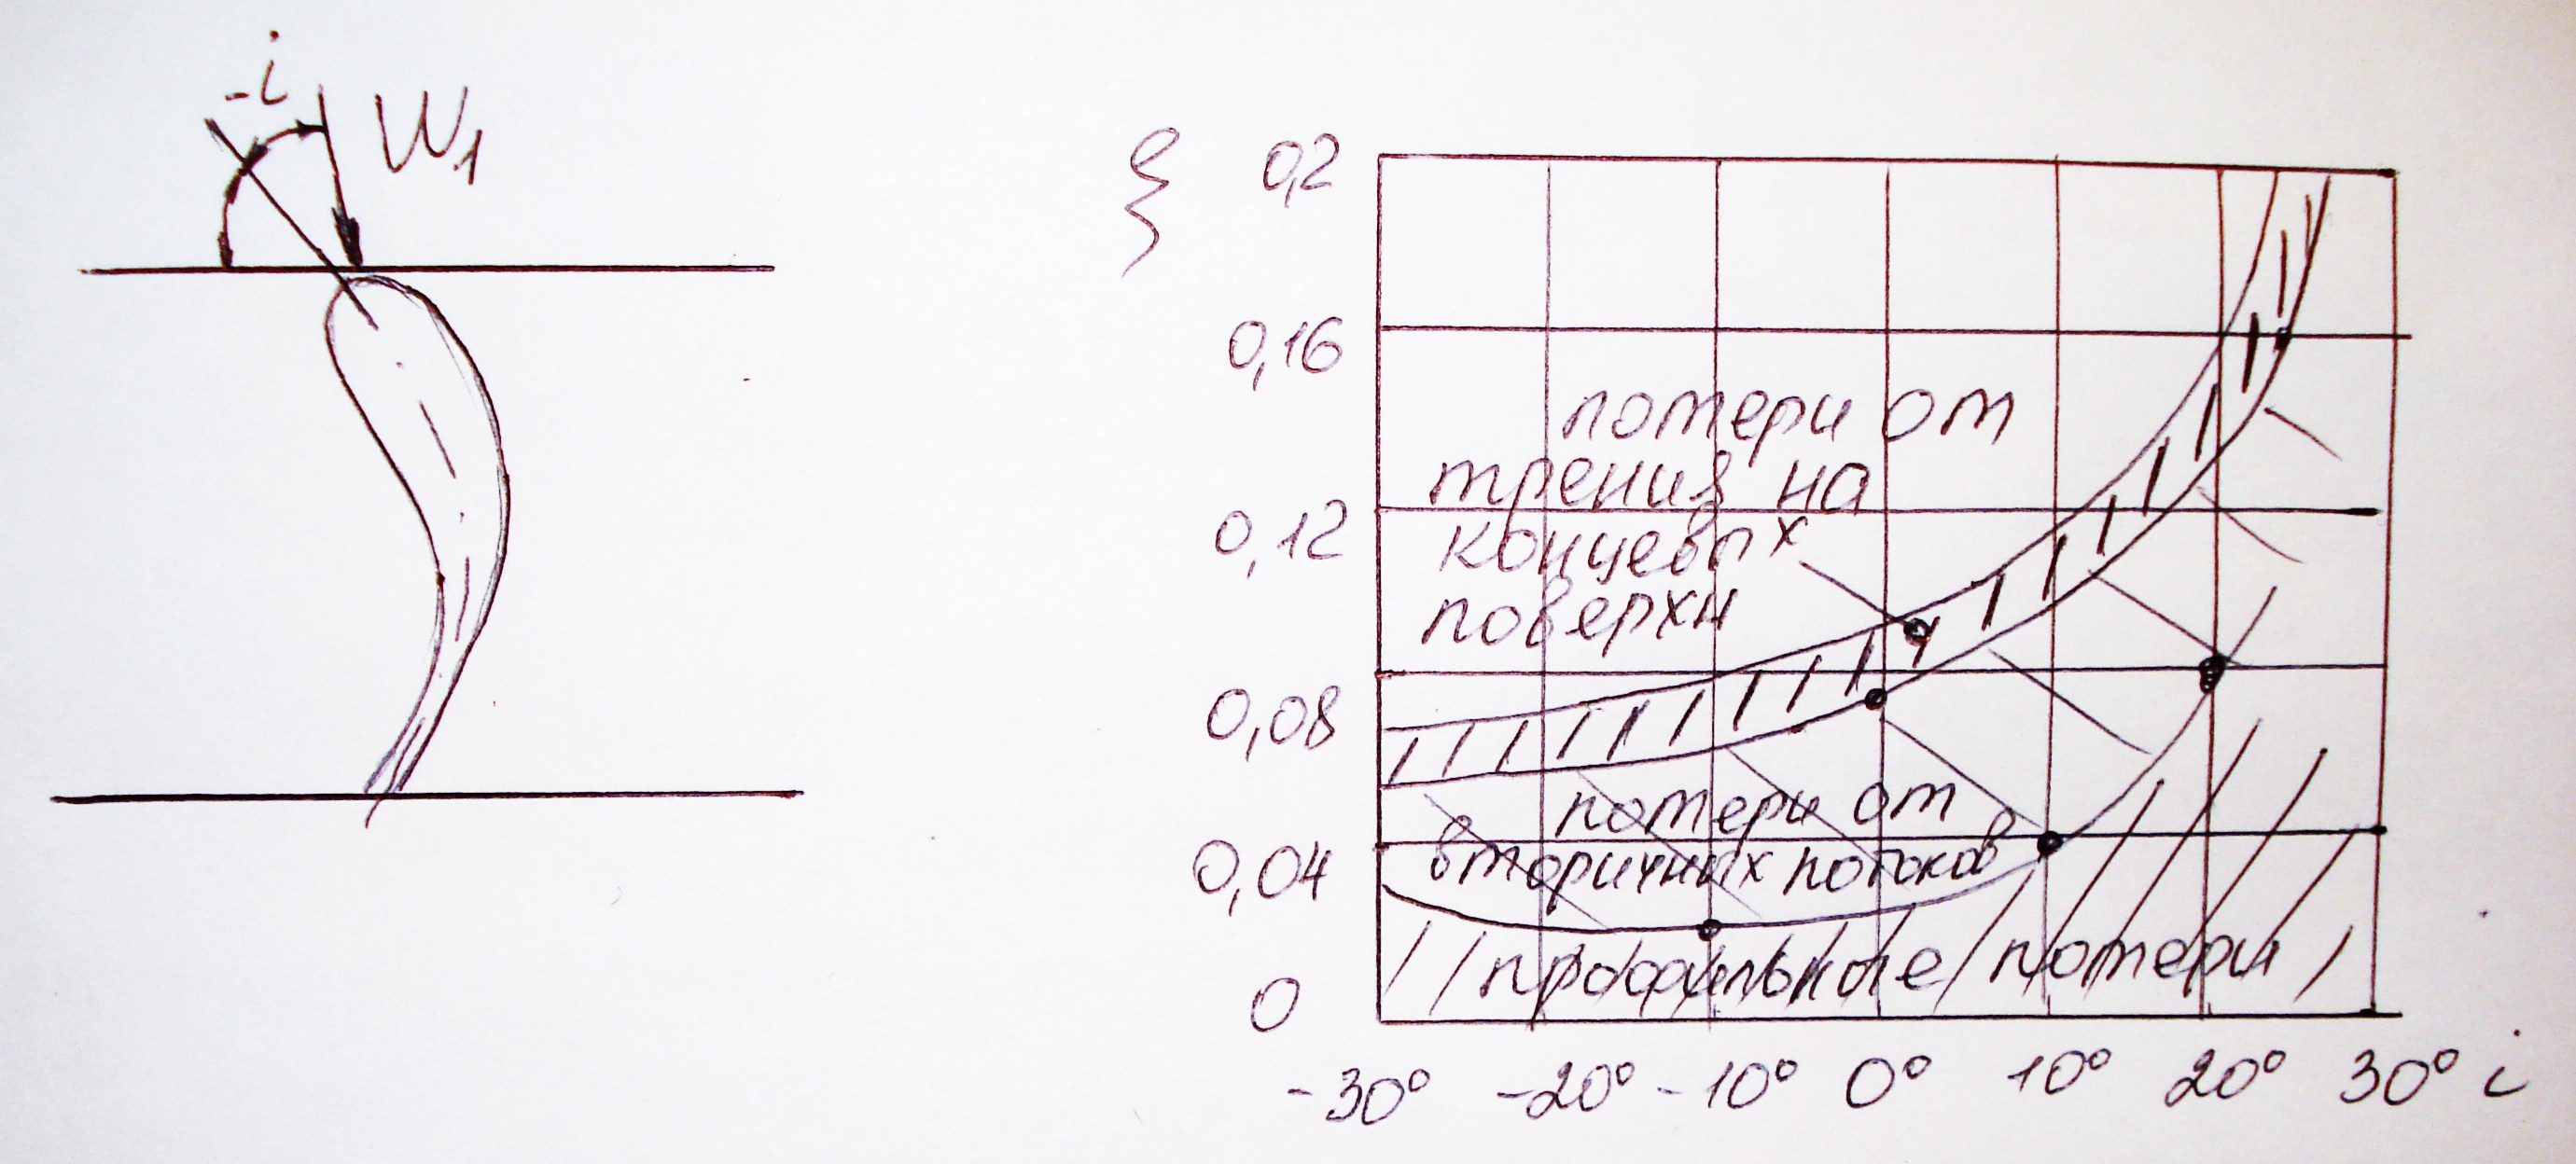 -i
W₁
ξ
0,2
0,16
0,12
0,08
0,04
0
потери от
трения на
концевых
поверхн
потери от
вторичных потоков
профильные потери
-30° -20° -10° 0° 10° 20° 30° i